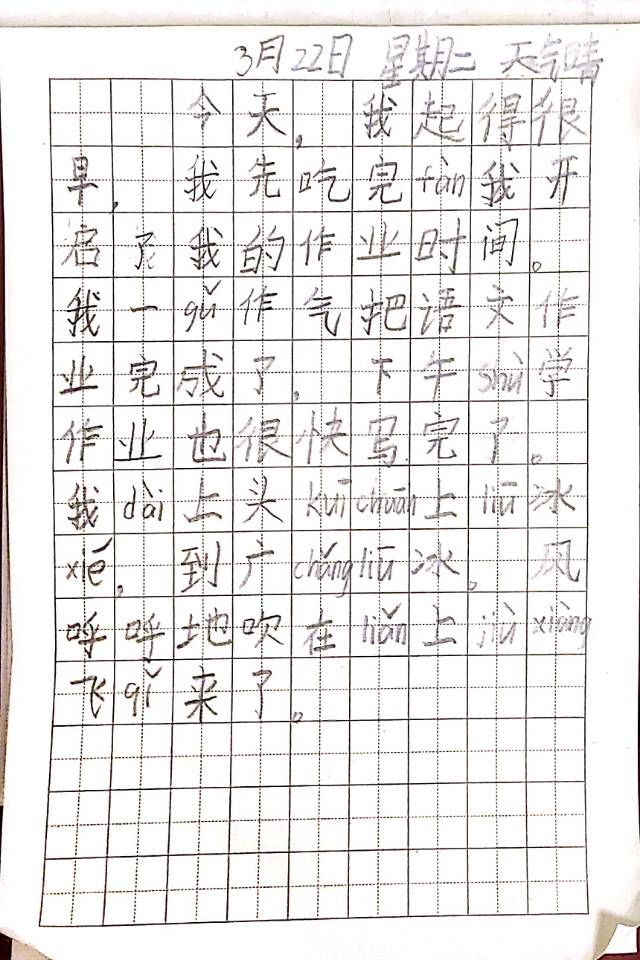 3月22日 星期二 天气晴
今天,我起得很
早,我先吃完fàn我开
启了我的作业时间。
我一gǔ作气把语文作
业完成了,下午shù学
作业也很快写完了。
我dài上头kuīchuān上liū冰
xié,到广chǎngliū冰。风
呼呼地吹在liǎn上jiù xiàng
飞qǐ来了。